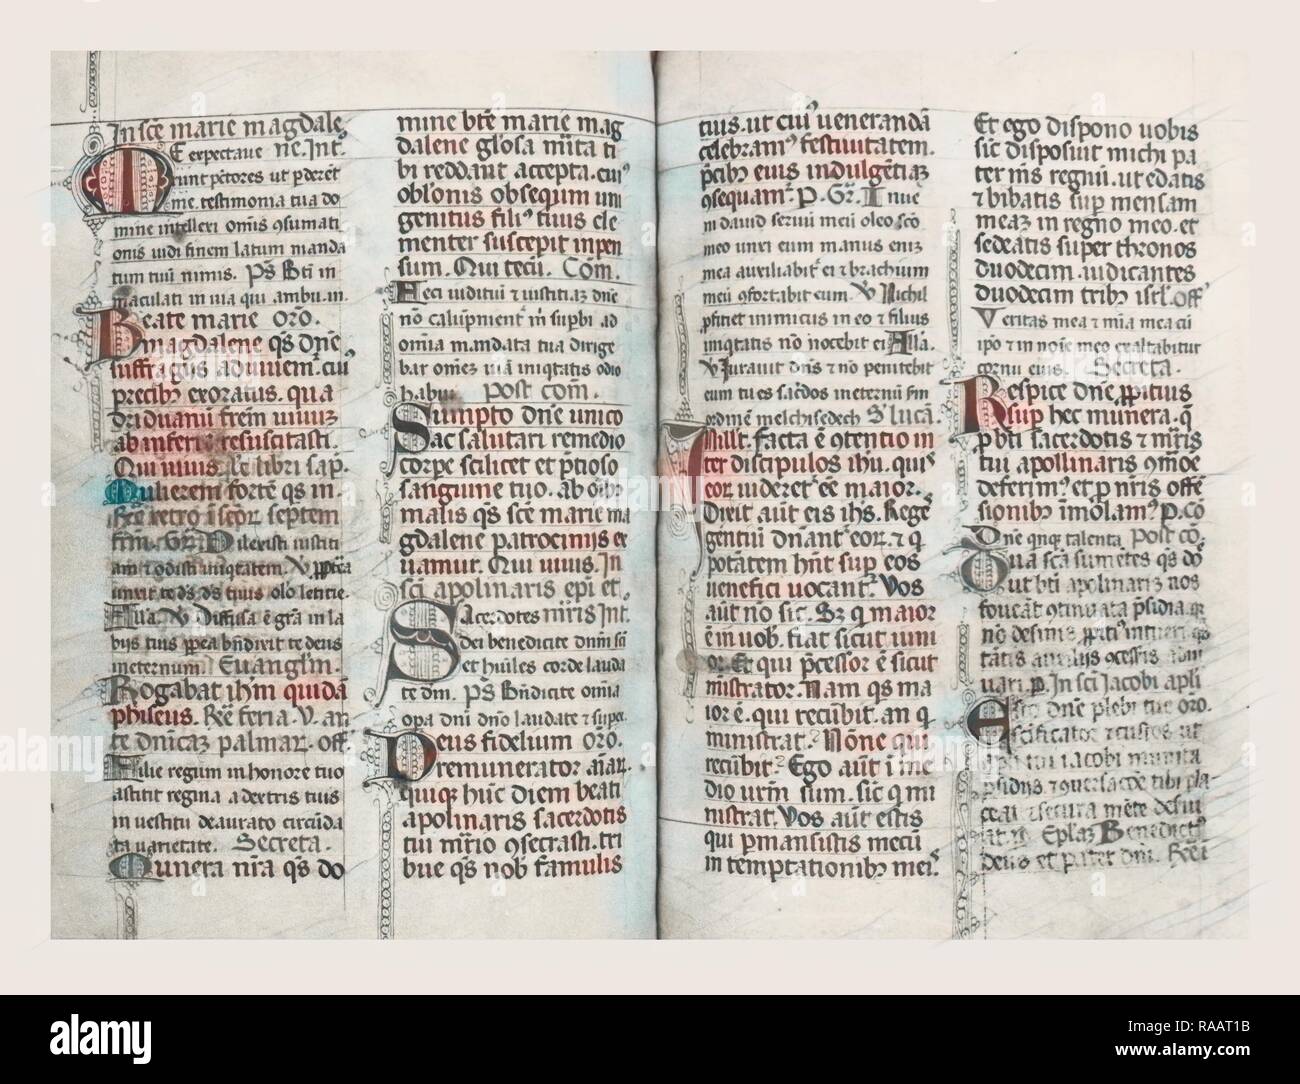 In sc̄e marie magdale
E expectaue ne. Int.
runt pc̄tores ut p̄derēt
me. testimonia tua do
mine intellexi om̄is ꝯsumati
onis uidi finem latum manda
tum tuū nimis. Ps̄ Bt̄i in
maculati in uia qui ambu. in.
Beate marie Or̄o.
magdalene qs̄ dn̄e
suffragijs adiuuem. cuiꝰ
precibꝫ exoratus. qua
driduanū frēm uiuū
ab inferis resuscitasti.
Qui uiuis. Lc̄ libri sap.
Mulierem fortē qs̄ in.
Rē retro ī
frm. Gr̄. Dilexisti iustiti
am et odisti iniqtatem. V̄ ꝓpterea
unxit te ds̄ ds̄ tuus oleo letitie.
Alla. V̄ Diffusa ē gr̄a in la
bijs tuis ꝓpterea bn̄dixit te deus
in eternum. Euangl̄m.
Rogabat ihm̄ quidā
phiseus. Rē feria. V. an
te dn̄icaꝫ palmaꝝ. off.
Filie regum in honore tuo
astitit regina a dextris tuis
in uestitu deaurato circūda
ta uarietate. Secreta.
Munera nr̄a qs̄ do
mine bt̄e marie mag
dalene gl̄osa mīta ti
bi reddant accepta. cuiꝰ
obl̄onis obsequium uni
genitus filiꝰ tuus cle
menter suscepit inpen
sum. Qui tecū. Com.
Feci iudiciū ⁊ iustitiaꝫ dn̄e
nō calūpnient̄ m̄ supbi ad
omīa mandata tua dirige
bar om̄eꝫ uiā iniqtatis odio
habui. Post com̄.
Sumpto dn̄e unico
ac salutari remedio
corpe scilicet et p̄tioso
sanguine tuo. ab oībꝫ
malis qs̄ sc̄e marie ma
gdalene patrocinijs er
uamur. Qui uiuis. In
sc̄i apolinaris ep̄i et
Sacerdotes mr̄is Int.
dei benedicite dn̄m sc̄i
et hūiles corde lauda
te dm̄. Ps̄ Bn̄dicite om̄ia
opa dn̄i dn̄o laudate ⁊ supex.
Deus fidelium Or̄o.
remunerator aīaꝝ.
quiqꝫ hūc diem beati
apolinaris sacerdotis
tui mr̄io ꝯsecrasti. tri
bue qs̄ nob̄ famulis
tuis. ut cuiꝰ uenerandā
celebramꝰ festiuitatem.
p̄cibꝫ eius indulgētiaꝫ
ꝯsequamr̄. P. Gr̄. Inue
ni dauid seruū meū oleo sc̄o
meo unxi eum manus enim
mea auxiliabit̄ ei ⁊ brachium
meū ꝯfortabit eum. V̄ Nichil
ꝓficiet inimicus in eo ⁊ filius
iniqtatis nō nocebit ei Alla.
V̄ Iurauit dn̄s ⁊ nō penitebit
eum tu es sac̄dos in eternū sm̄
ordinē melchisedech. S' lucā.
In ill̄t. facta ē ꝯtentio in
ter discipulos ihū. quis
eoꝝ uideret̄ eē maior.
Dixit aūt eis ihs̄. Rege
gentiū dn̄ant̄ eoꝝ. ⁊ q̄
potātem hn̄t sup eos
benefici uocant̄. Vos
aūt nō sic. Sꝫ q̄ maior
ē in uob̄. fiat sicut iuni
or. Et qui p̄cessor ē sicut
mīstrator. Nam qs̄ ma
ior ē. qui recūbit. an q̄
ministrat? Nōne qui
recūbit? Ego aūt ī me
dio ur̄m sum. sic̄ q̄ mi
nistrat. Vos aūt estis
qui pmansistis mecū
in temptationibꝫ meis.
Et ego dispono uobis
sic̄ disposuit michi pa
ter mꝰ regnū. ut edatis
⁊ bibatis sup mensam
meaꝫ in regno meo. et
sedeatis super thronos
duodecim. iudicantes
duodecim tribꝫ isrl̄. Off'
Veritas mea ⁊ mīa mea cū
ipo ⁊ in noīe meo exaltabitur
cornu eius. Secreta.
Respice dn̄e ꝓpitius
sup hec munera. q̄
p̄ bt̄i sacerdotis ⁊ mr̄is
tui apollinaris ꝯmōe
deferimꝰ et p̄ nr̄is offē
sionibꝫ īmolamꝰ. P. Co
Dn̄e qnqꝫ talenta. Post cō.
Tua sc̄a sumētes qs̄ do
ut bt̄i apolinaris nos
foueāt ꝯtinuata p̄sidia. qꝫ
nō desinis ꝓpitiꝰ intueri qs̄
tātis auxilijs ꝯcesseris adiu
uari. P. In sc̄i Iacobi apl̄i
Esto dn̄e plebi tue Or̄o.
sc̄ificator ⁊ custos ut
apl̄i tui iacobi munita
p̄sidijs ⁊ ꝯuersatōe tibi pla
ceat ⁊ secura mēte deseru
at. Epl̄a Benedictꝰ
deus et pater dn̄i. Rē
alamy
alamy
Image ID: RAAT1B
www.alamy.com